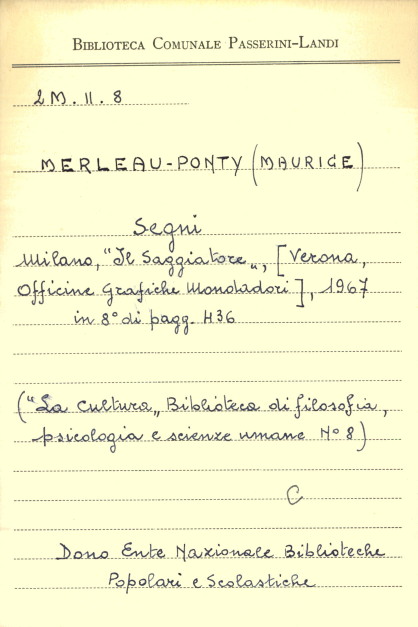 BIBLIOTECA COMUNALE PASSERINI-LANDI
2M. II. 8
MERLEAU-PONTY (MAURICE)
Segni
Milano, "Il Saggiatore", [Verona,
Officine Grafiche Mondadori], 1967
in 8° di pagg. 436
("La cultura" Biblioteca di filosofia,
psicologia e scienze umane N° 8)
C
Dono Ente Nazionale Biblioteche
Popolari e Scolastiche